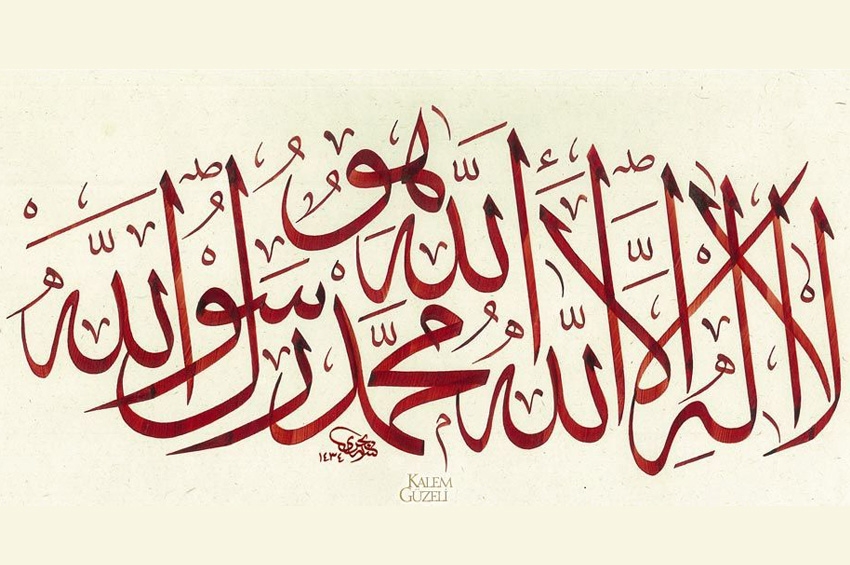 هو الله
لا اله الا الله محمد رسول الله
١٤٣٤
KALEM
GÜZELİ